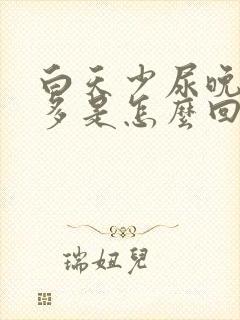 白天少尿晚
多是怎麼回
瑞妞兒